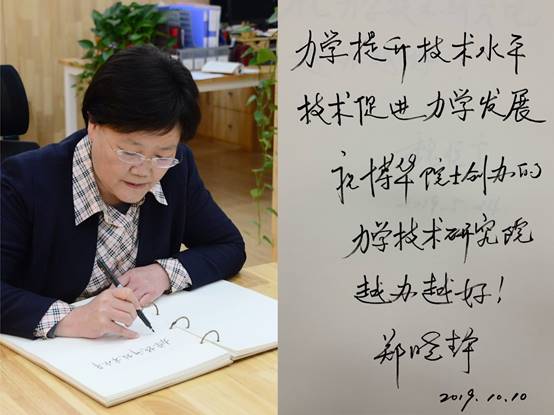 力学提升技术水平
技术促进力学发展
祝博华院士创办的
力学技术研究院
越办越好!
郑晓静
2019.10.10